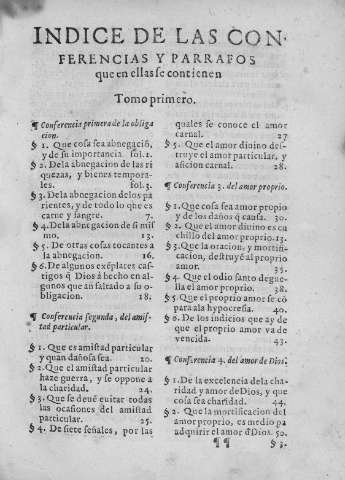 INDICE DE LAS CON-
FERENCIAS Y PARRAFOS
que en ellas se contienen
Tomo primero.
¶ Conferencia primera de la obliga
cion.
§ 1. Que cosa sea abnegació,
y de su importancia fol.1.
§ 2. Dela abnegacion de las ri
quezas, y bienes tempora-
les. fol.3.
§ 3. Dela abnegacion delos pa
rientes, y de todo lo que es
carne y sangre. 7.
§ 4. Dela abnegacion de si mis
mo. 13.
§ 5. De otras cosas tocantes a
la abnegacion. 16.
§ 6. De algunos exéplares cas-
tigos q̃ Dios à hecho en al-
gunos que an faltado a su o-
bligacion. 18.
¶ Conferencia segunda, del amis-
tad particular.
§ 1. Que es amistad particular
y quan dañosa sea. 20.
§ 2. Que el amistad particular
haze guerra, y se opone a
la charidad. 24.
§ 3. Que se deué euitar todas
las ocasiones del amistad
particular. 25.
§ 4. De siete señales, por las
quales se conoce el amor
carnal. 27
§ 5. Que el amor diuino des-
truye el amor particular, y
aficion carnal. 28.
¶ Conferencia 3. del amor proprio.
§ 1. Que cosa sea amor propio
y de los daños q̃ causa. 30.
§ 2. Que el amor diuino es cu
chillo del amor proprio. 33.
§ 3. Que la oracion, y mortifi-
cacion, destruyé al proprio
amor. 35.
§ 4. Que el odio santo degue-
lla el amor proprio. 38.
§ 5. Que el proprio amor se có
para ala hypocresia. 40.
§ 6. De los indicios que ay de
que el proprio amor va de
vencida. 43.
¶ Conferencia 4. del amor de Dios.
§ 1. De la excelencia dela cha-
ridad y amor de Dios, y que
cosa sea charidad. 44.
§ 2. Que la mortificacion del
amor proprio, es medio pa
adquirir el amor d̃ Dios. 50.
¶¶ § 3.